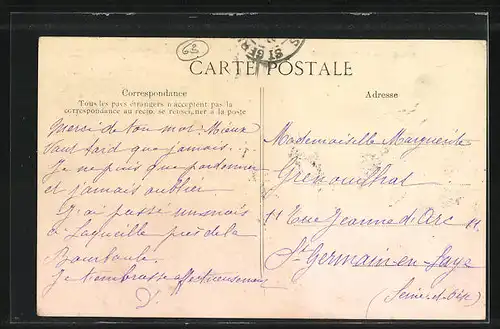 63
ST GER
CARTE POSTALE
Correspondance
Tous les pays étrangers n'acceptent pas la
correspondance au recto, se renseigner à la poste
Adresse
Merci de ton mot. Mieux
vaut tard que jamais...
Je ne puis que pardonner
et jamais oublier
J'ai passé un mois
à Laqueille près de la
Bourboule.
Je t'embrasse affectueusement
Mademoiselle Marguerite
Grenouilhat
11 Rue Jeanne d'Arc 11.
St Germain-en-Laye
(Seine-et-Oise)